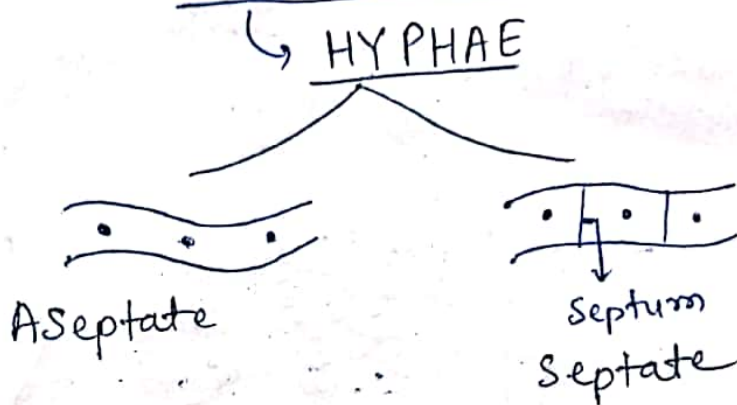 HYPHAE
Aseptate
Septum
Septate